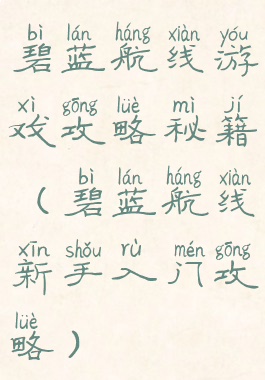 bì lán háng xiàn yóu
碧蓝航线游
xì gōng lüè mì jí
戏攻略秘籍
bì lán háng xiàn
(碧蓝航线
xīn shǒu rù mén gōng
新手入门攻
lüè
略)